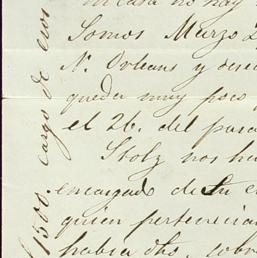 en casa no hay
Somos Marzo 2
N. Orleans y dese
queda muy poco
el 26. del pasa
Stolz nos ha
encargado de su e
quien pertenecian
habia dho, sobr
$1500. cargo de